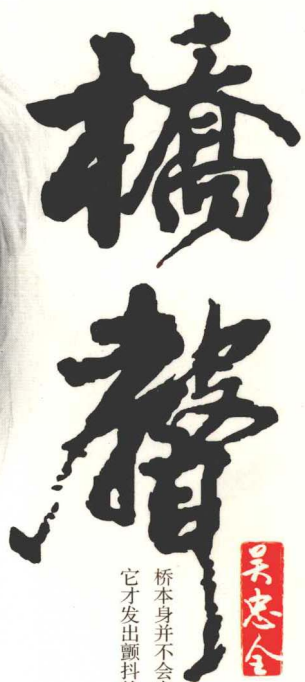 橋聲
吴忠全
桥本身并不会
它才发出颤抖